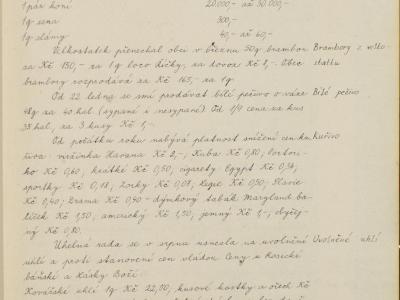 1 pár koní 20.000 - až 30.000 -
1 q sena 300 -
1 q slámy 40,- až 60,-
Velkostatek přenechal obci v březnu 50 q brambor Brambory z velko-
za Kč 150,- za 1 q loco Říčky, za dovoz Kč 8,- Obec statku
brambory rozprodává za Kč 165,- za 1 q.
Od 22. ledna se smí prodávat bílé pečivo o váze Bílé pečivo
48 g za 40 hal. (sypané i nesypané) Od 1/4 cena za kus
38 hal., za 3 kusy Kč 1,-
Od počátku roku nabývá platnost snížení cen ku Kuřivo
řiva: viržinka Havana Kč 2,-, Kuba Kč 0,80; Portori-
ko Kč 0,60; krátké Kč 0,50; cigarety Egypt Kč 0,34;
sportky Kč 0,18; Zorky Kč 0,08, Legie Kč 0,30; Slavie
Kč 0,40; Drama Kč 0,40 - dýmkový tabák Maryland ba-
líček Kč 1,50; americký Kč 1,50, jemný Kč 1,-, obyčej-
ný Kč 0,80.
Uhelná rada se v srpnu usnesla na uvolnění Uvolněné uhlí
uhlí a proti stanovení cen vládou. Ceny u Rosické
báňské a Lásky Boží:
Kovářské uhlí 1 q Kč 22,00; kusové kostky a ořech Kč